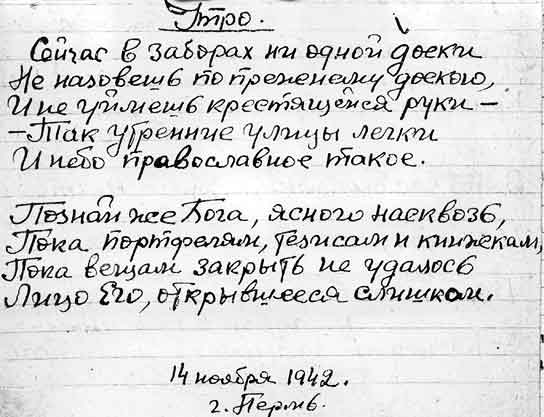 Утро.
Сейчас в заборах ни одной доски
Не назовешь по прежнему доскою,
И не уймешь крестящейся руки –
– Так утренние улицы легки
И небо православное такое.
Познай же Бога, ясного насквозь,
Пока портфелям, тезисам и книжкам,
Пока вещам закрыть не удалось
Лицо Его, открывшееся слишком.
14 ноября 1942.
г. Пермь.